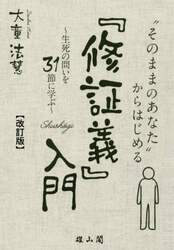 “そのままのあなた”
からはじめる
『修証義』入門
Shushogi
～生死の問いを
31節に学ぶ～
大童法慧
【改訂版】
雄山閣